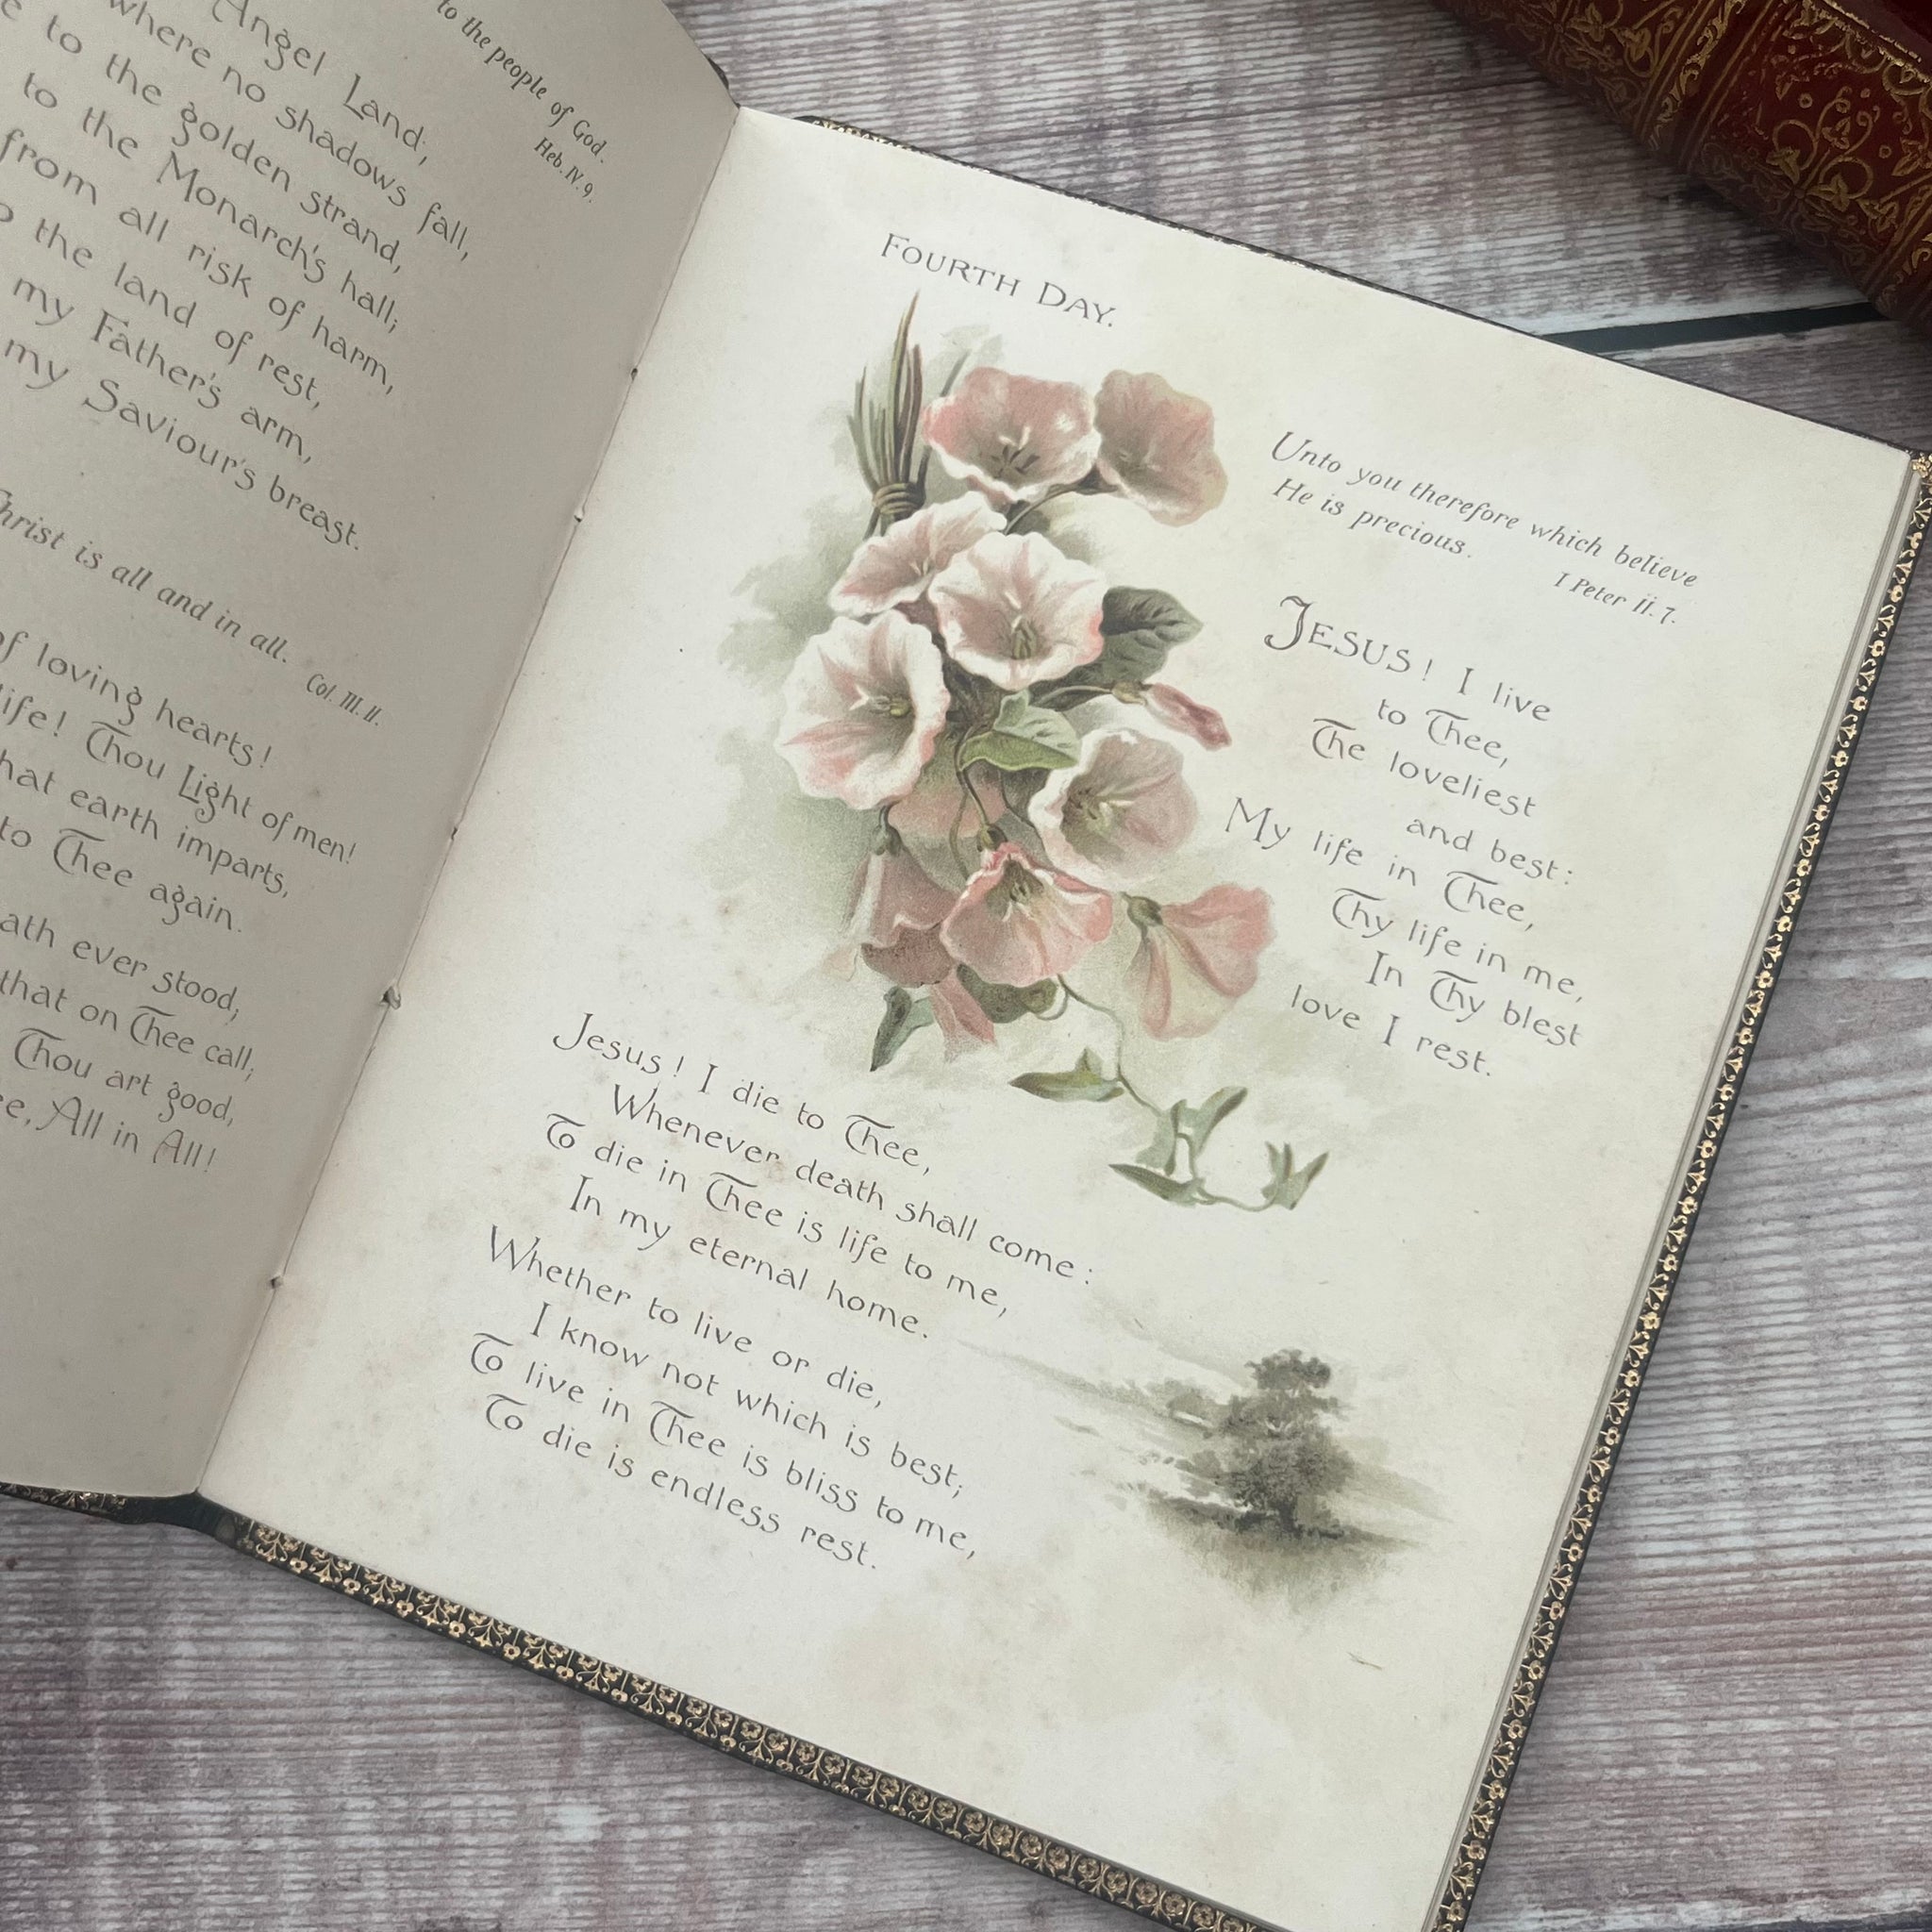 to the people of God.
Heb. IV. 9.
Angel Land,
where no shadows fall,
to the golden strand,
to the Monarch's hall;
from all risk of harm,
the land of rest,
my Father's arm,
my Saviour's breast.
Christ is all and in all.
Col. III. II.
of loving hearts!
life! Thou Light of men!
that earth imparts,
to Thee again.
ever stood,
that on Thee call;
Thou art good,
All in All!
FOURTH DAY.
Unto you therefore which believe
He is precious.
I Peter II. 7.
JESUS! I live
to Thee,
The loveliest
and best:
My life in Thee,
Thy life in me,
In Thy blest
love I rest.
Jesus! I die to Thee,
Whenever death shall come:
To die in Thee is life to me,
In my eternal home.
Whether to live or die,
I know not which is best;
To live in Thee is bliss to me,
To die is endless rest.